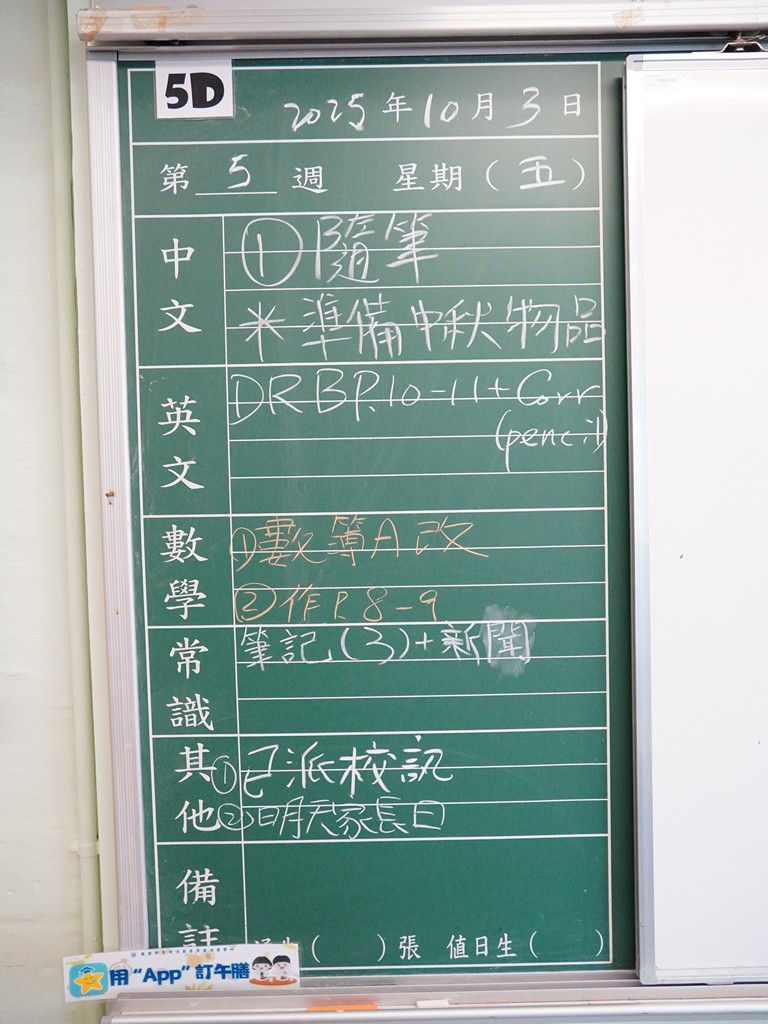 5D
2025年10月3日
第 5 週 星期(五)
中文
①隨筆
*準備中秋物品
英文
DRB P.10-11 + Corr
(pencil)
數學
①數簿A改
②作P.8-9
常識
筆記(3)+新聞
其他
①已派校訊
②明天家長日
備註
( )張 值日生( )
用“App”訂午膳